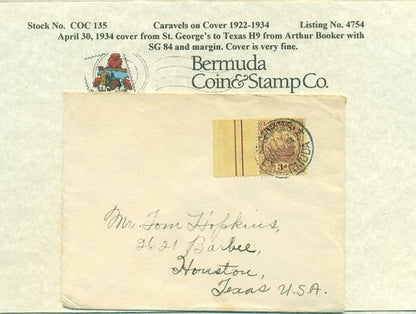 Stock No. COC 135 Caravels on Cover 1922-1934 Listing No. 4754
April 30, 1934 cover from St. George's to Texas H9 from Arthur Booker with
SG 84 and margin. Cover is very fine.
Bermuda
Coin&Stamp Co.
3d
Mr. Tom Hopkins,
2621 Barbee,
Houston,
Texas U.S.A.